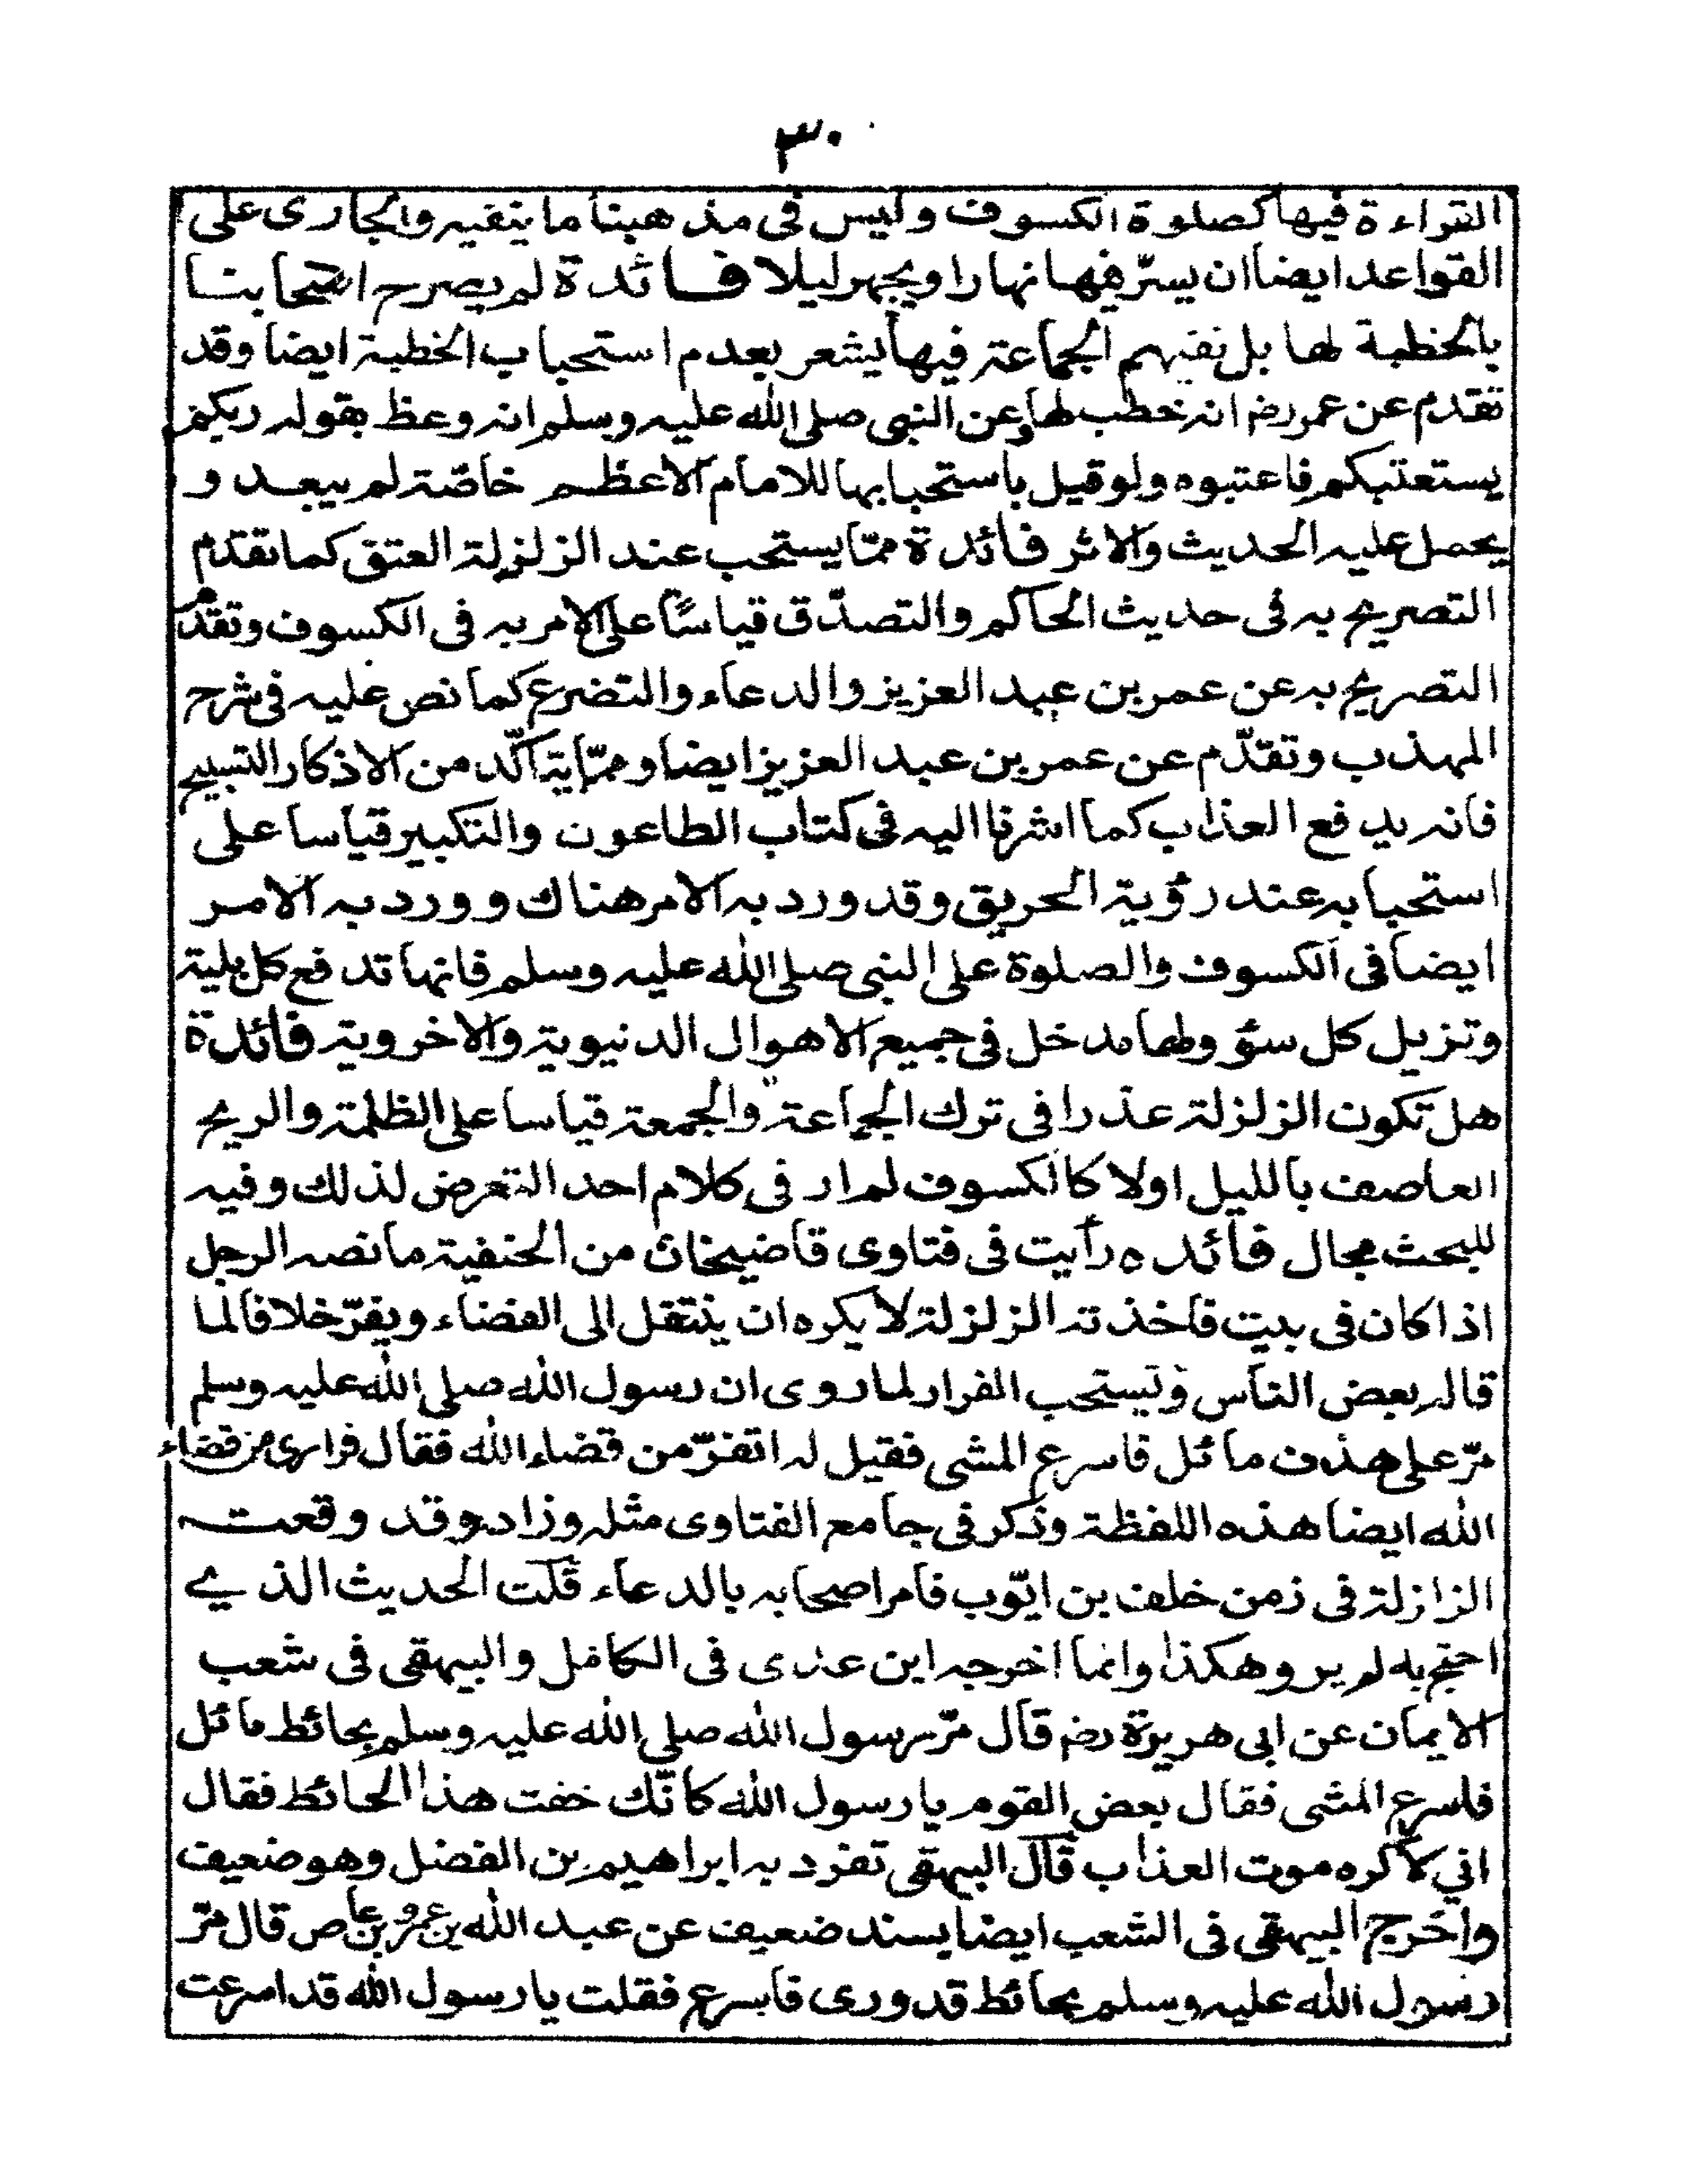 ٣٠
القراءة فيها كصلوة الكسوف وليس فى مذهبنا ما ينفيه والجارى على
القواعد ايضا ان يسرّ فيها نهارا ويجهر ليلا فائدة لم يصرح اصحابنا
بالخطبة لها بل نفيهم الجماعة فيها يشعر بعدم استحباب الخطبة ايضا وقد
تقدم عن عمر رضه انه خطب لها وعن النبى صلى الله عليه وسلم انه وعظ بقوله ربكم
يستعتبكم فاعتبوه ولو قيل باستحبابها للامام الاعظم خاصّة لم يبعد و
يحمل عليه الحديث والاثر فائدة ممّا يستحب عند الزلزلة العتق كما تقدم
التصريح به فى حديث الحاكم والتصدّق قياسًا على الامر به فى الكسوف وتقدّم
التصريح به عن عمر بن عبد العزيز والدعاء والتضرع كما نص عليه فى شرح
المهذب وتقدّم عن عمر بن عبد العزيز ايضا وممّا يتأكّد من الاذكار التسبيح
فانه يدفع العذاب كما اشرنا اليه فى كتاب الطاعون والتكبير قياسا على
استحبابه عند رؤية الحريق وقد ورد به الامر هناك وورد به الامر
ايضا فى الكسوف والصلوة على النبى صلى الله عليه وسلم فانها تدفع كل بلية
وتزيل كل سؤ ولها مدخل فى جميع الاهوال الدنيوية والاخروية فائدة
هل تكون الزلزلة عذرا فى ترك الجماعة والجمعة قياسا على الظلمة والريح
العاصف بالليل اولا كالكسوف لم ار فى كلام احد التعرض لذلك وفيه
للبحث مجال فائده رأيت فى فتاوى قاضيخان من الحنفية ما نصه الرجل
اذا كان فى بيت فاخذته الزلزلة لا يكره ان ينتقل الى الفضاء ويفرّ خلافا لما
قاله بعض الناس ويستحب الفرار لما روى ان رسول الله صلى الله عليه وسلم
مرّ على هدف مائل فاسرع المشى فقيل له اتفرّ من قضاء الله فقال فرارى من قضاء
الله ايضا هذه اللفظة وذكر فى جامع الفتاوى مثله وزاد وقد وقعت
الزلزلة فى زمن خلف بن ايّوب فامر اصحابه بالدعاء قلت الحديث الذي
احتج به لم يرو هكذا وانما اخرجه ابن عدى فى الكامل والبيهقى فى شعب
الايمان عن ابى هريرة رضه قال مرّ رسول الله صلى الله عليه وسلم بحائط مائل
فاسرع المشى فقال بعض القوم يا رسول الله كانّك خفت هذا الحائط فقال
اني لأكره موت العذاب قال البيهقى تفرد به ابراهيم بن الفضل وهو ضعيف
واخرج البيهقى فى الشعب ايضا بسند ضعيف عن عبد الله بن عمرو بن عاص قال مرّ
رسول الله عليه وسلم بحائط قد ورى فاسرع فقلت يا رسول الله قد اسرعت